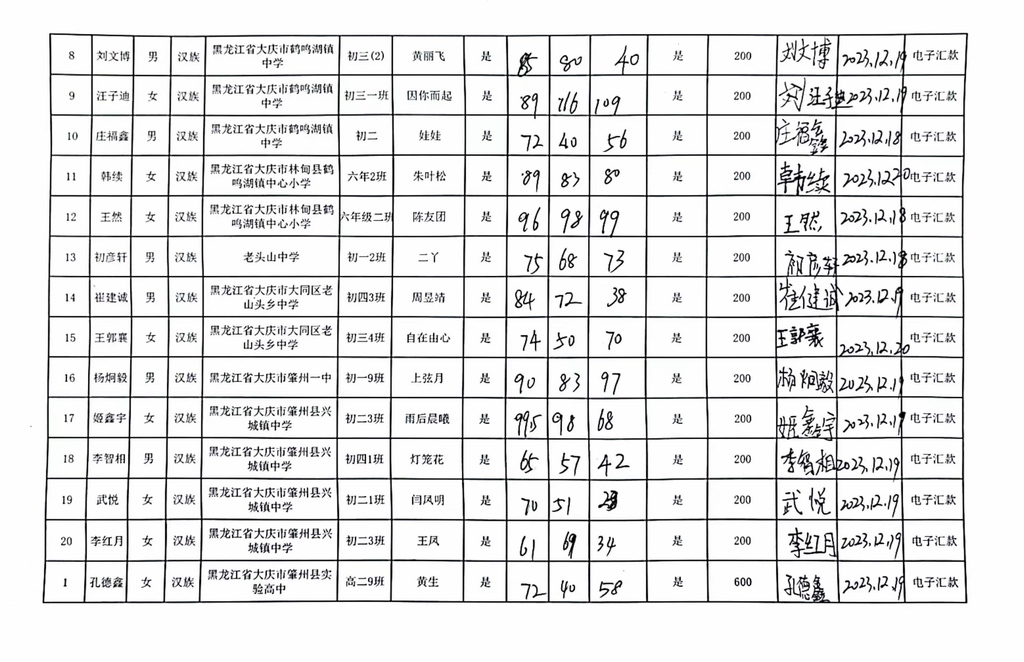 8 刘文博 男 汉族 黑龙江省大庆市鹤鸣湖镇中学 初三(2) 黄丽飞 是 85 80 40 是 200 刘文博 2023.12.19 电子汇款
9 汪子迪 女 汉族 黑龙江省大庆市鹤鸣湖镇中学 初三一班 因你而起 是 89 109 是 200 汪子迪 2023.12.19 电子汇款
10 庄福鑫 男 汉族 黑龙江省大庆市鹤鸣湖镇中学 初二 娃娃 是 72 40 56 是 200 庄福鑫 2023.12.18 电子汇款
11 韩续 女 汉族 黑龙江省大庆市林甸县鹤鸣湖镇中心小学 六年2班 朱叶松 是 89 83 80 是 200 韩续 2023.12.20 电子汇款
12 王然 女 汉族 黑龙江省大庆市林甸县鹤鸣湖镇中心小学 六年级二班 陈友团 是 96 98 99 是 200 王然 2023.12.18 电子汇款
13 初彦轩 男 汉族 老头山中学 初一2班 二丫 是 75 68 73 是 200 初彦轩 2023.12.18 电子汇款
14 崔建诚 男 汉族 黑龙江省大庆市大同区老山头乡中学 初四3班 周昱靖 是 84 72 38 是 200 崔健诚 2023.12.19 电子汇款
15 王郭襄 女 汉族 黑龙江省大庆市大同区老山头乡中学 初三4班 自在由心 是 74 50 70 是 200 王郭襄 2023.12.20 电子汇款
16 杨炯毅 男 汉族 黑龙江省大庆市肇州一中 初一9班 上弦月 是 90 83 97 是 200 杨炯毅 2023.12.19 电子汇款
17 姬鑫宇 女 汉族 黑龙江省大庆市肇州县兴城镇中学 初二3班 雨后晨曦 是 99.5 98 68 是 200 姬鑫宇 2023.12.19 电子汇款
18 李智相 男 汉族 黑龙江省大庆市肇州县兴城镇中学 初四1班 灯笼花 是 65 57 42 是 200 李智相 2023.12.19 电子汇款
19 武悦 女 汉族 黑龙江省大庆市肇州县兴城镇中学 初二1班 闫凤明 是 70 51 是 200 武悦 2023.12.19 电子汇款
20 李红月 女 汉族 黑龙江省大庆市肇州县兴城镇中学 初二3班 王凤 是 61 69 34 是 200 李红月 2023.12.19 电子汇款
1 孔德鑫 女 汉族 黑龙江省大庆市肇州县实验高中 高二9班 黄生 是 72 40 58 是 600 孔德鑫 2023.12.19 电子汇款